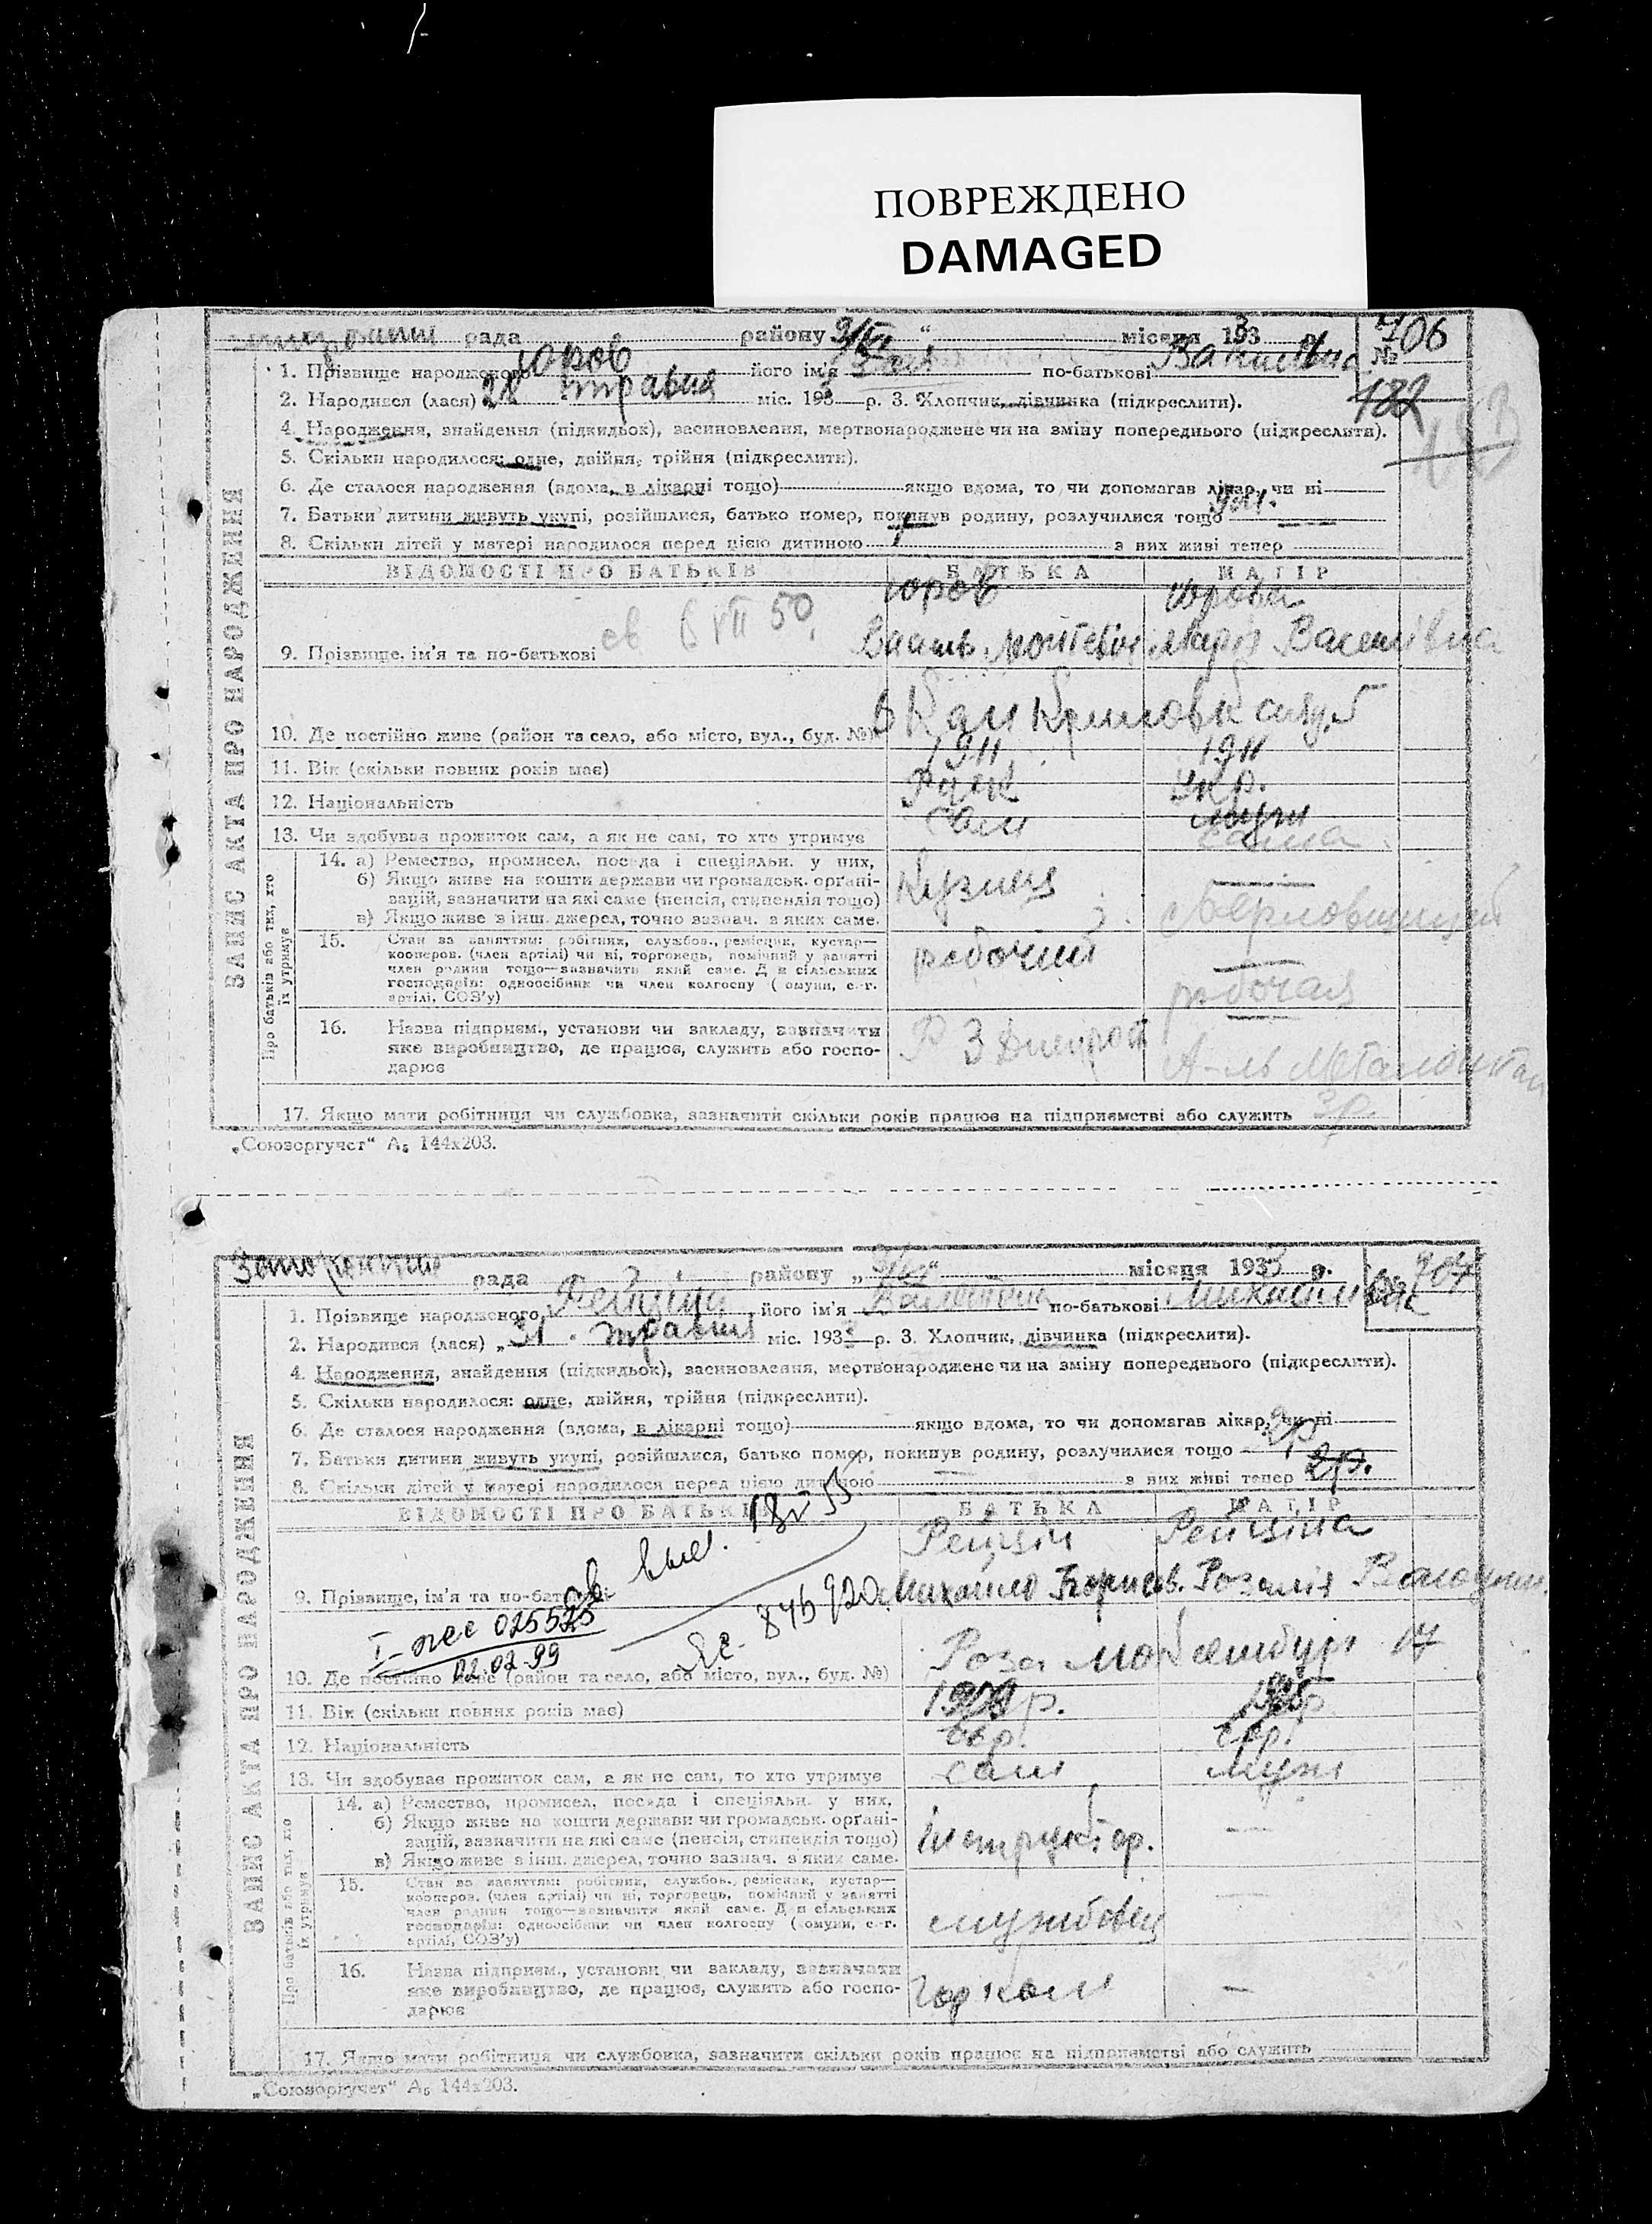 ПОВРЕЖДЕНО
DAMAGED
рада району 9/VI " місяця 1933 р. № 706
1. Прізвище народженого Юров його ім'я по-батькові
182
2. Народився (лася) „28 травня міс. 1933 р. 3. Хлопчик, дівчинка (підкреслити).
4. Народження, знайдення (підкидьок), засиновлення, мертвонароджене чи на зміну попереднього (підкреслити).
5. Скільки народилося: одне, двійня, трійня (підкреслити).
6. Де сталося народження (вдома, в лікарні тощо) якщо вдома, то чи допомагав лікар, чи ні
7. Батьки дитини живуть укупі, розійшлися, батько помер, покинув родину, розлучилися тощо
8. Скільки дітей у матері народилося перед цією дитиною з них живі тепер
ВІДОМОСТІ ПРО БАТЬКІВ БАТЬКА МАТІР
Юров Юрова
св 6 VII 50
9. Прізвище, ім'я та по-батькові Марія
10. Де постійно живе (район та село, або місто, вул., буд. №)
11. Вік (скільки повних років має) 1911 1911
12. Національність Укр.
13. Чи здобуває прожиток сам, а як не сам, то хто утримує сам муж сама
14. а) Ремество, промисел, посада і спеціяльн. у них,
б) Якщо живе на кошти держави чи громадськ. органі-
зацій, зазначити на які саме (пенсія, стипендія тощо)
в) Якщо живе з інш. джерел, точно зазнач. з яких саме.
Кузнец —
15. Стан за заняттям: робітник, службов., ремісник, кустар—
кооперов. (член артілі) чи ні, торговець, помічний у занятті
член родини тощо—зазначити який саме. Для сільських
господарів: одноосібник чи член колгоспу (комуни, с.-г.
артілі, СОЗ'у)
рабочий — рабочая
16. Назва підприєм., установи чи закладу, зазначити
яке виробництво, де працює, служить або госпо-
дарює
17. Якщо мати робітниця чи службовка, зазначити скільки років працює на підприємстві або служить 3 р.
„Союзоргучет“ А₅ 144х203.
ЗАПИС АКТА ПРО НАРОДЖЕННЯ
Про батьків або тих, хто
їх утримує
рада району „9/VI“ місяця 1933 р. 707
1. Прізвище народженого його ім'я Валентина по-батькові
2. Народився (лася) „31. травня міс. 1933 р. 3. Хлопчик, дівчинка (підкреслити).
4. Народження, знайдення (підкидьок), засиновлення, мертвонароджене чи на зміну попереднього (підкреслити).
5. Скільки народилося: одне, двійня, трійня (підкреслити).
6. Де сталося народження (вдома, в лікарні тощо) якщо вдома, то чи допомагав лікар, чи ні
7. Батьки дитини живуть укупі, розійшлися, батько помер, покинув родину, розлучилися тощо 2р
8. Скільки дітей у матері народилося перед цією дитиною — з них живі тепер 2р.
ВІДОМОСТІ ПРО БАТЬКІВ БАТЬКА МАТІР
9. Прізвище, ім'я та по-батькові Михайло Борисов. Розалія
I- 025525
02.02.99
10. Де постійно живе (район та село, або місто, вул., буд. №) Роза Люксембург 17
11. Вік (скільки повних років має) 1909 р.
12. Національність Євр. Євр.
13. Чи здобуває прожиток сам, а як не сам, то хто утримує сам муж
14. а) Ремество, промисел, посада і спеціяльн. у них,
б) Якщо живе на кошти держави чи громадськ. органі-
зацій, зазначити на які саме (пенсія, стипендія тощо)
в) Якщо живе з інш. джерел, точно зазнач. з яких саме.
Інструктор. —
15. Стан за заняттям: робітник, службов., ремісник, кустар—
кооперов. (член артілі) чи ні, торговець, помічний у занятті
член родини тощо—зазначити який саме. Для сільських
господарів: одноосібник чи член колгоспу (комуни, с.-г.
артілі, СОЗ'у)
службовец —
16. Назва підприєм., установи чи закладу, зазначити
яке виробництво, де працює, служить або госпо-
дарює
Горком —
17. Якщо мати робітниця чи службовка, зазначити скільки років працює на підприємстві або служить
„Союзоргучет“ А₅ 144х203.
ЗАПИС АКТА ПРО НАРОДЖЕННЯ
Про батьків або тих, хто
їх утримує